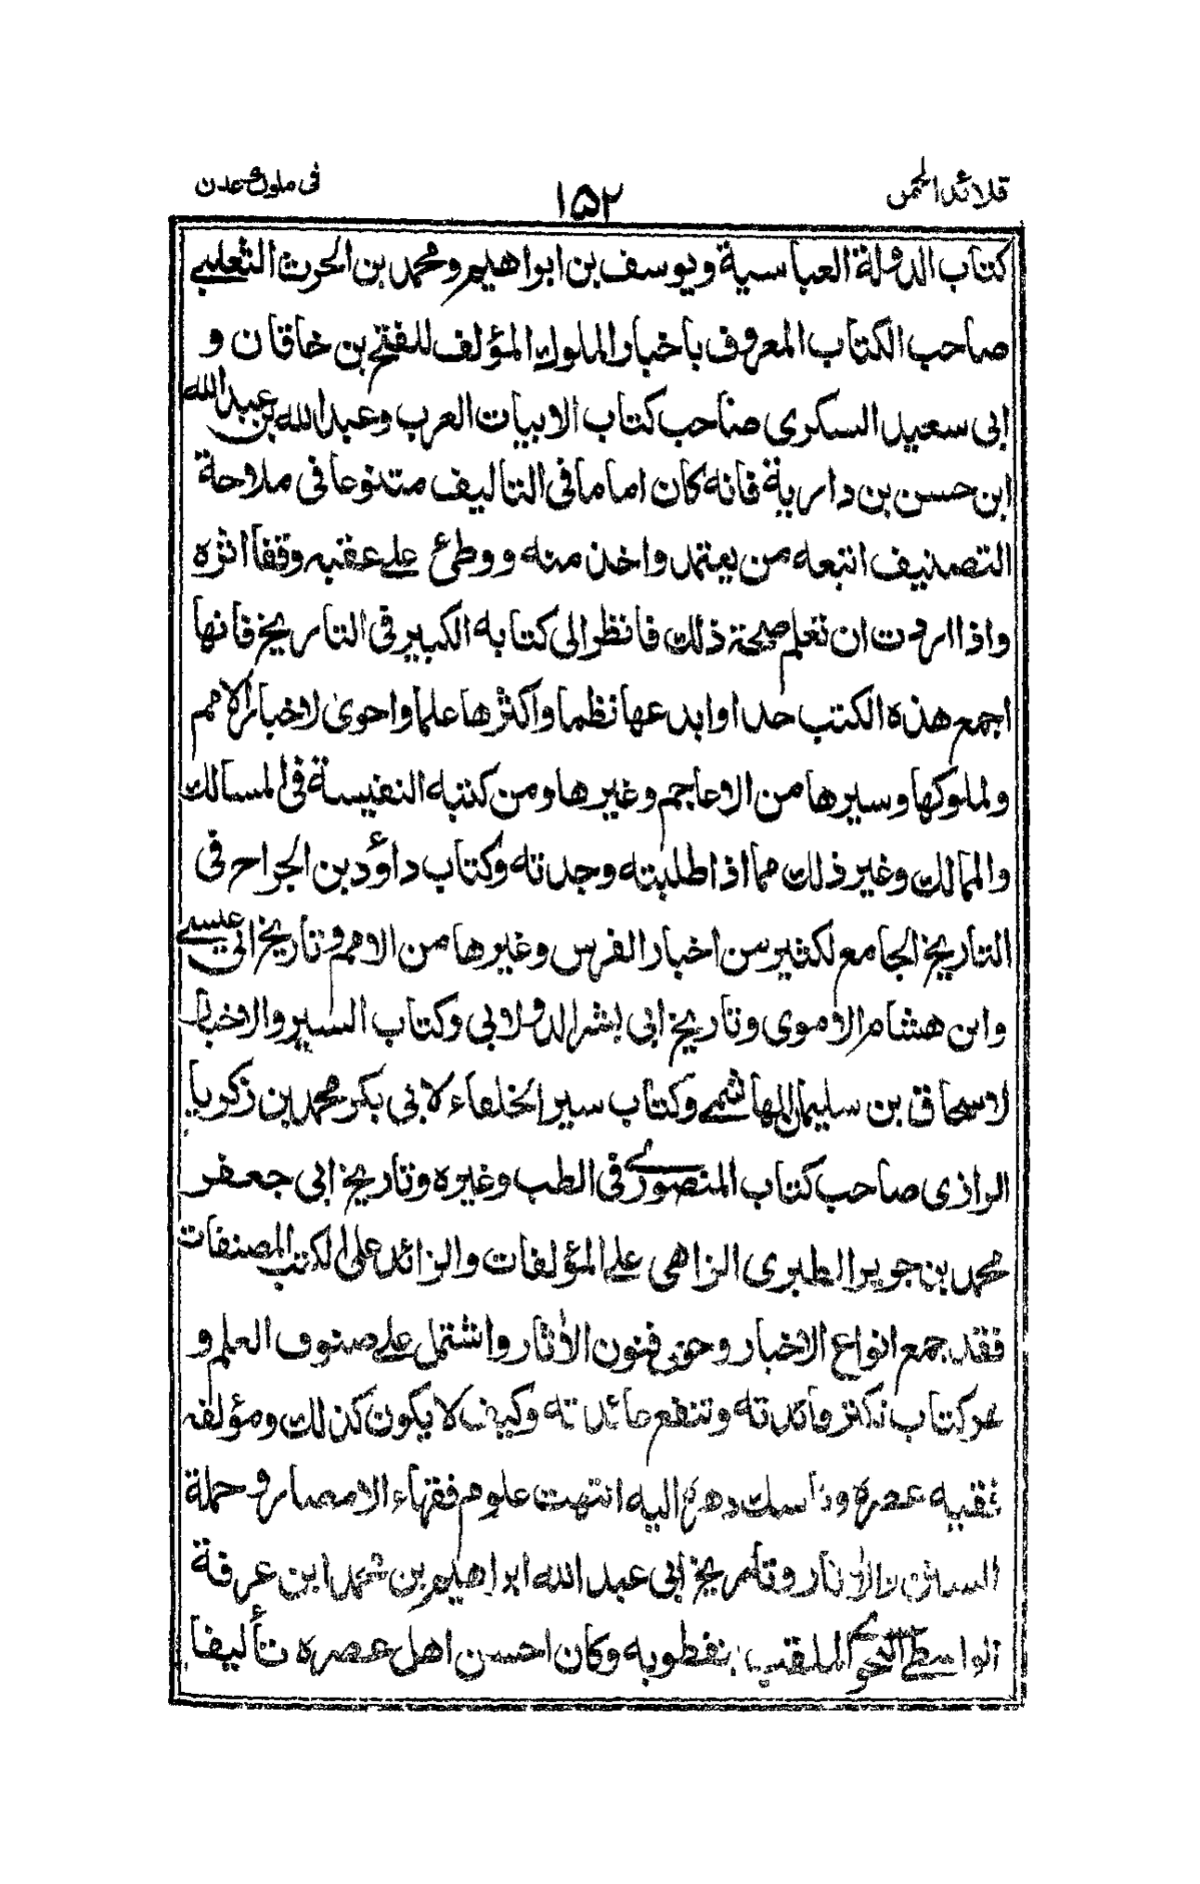 قلائد الجمن
١٥٢
فى ملوك عدن
كتاب الدولة العباسية ويوسف بن ابراهيم ومحمد بن الحرث الثعلبي
صاحب الكتاب المعروف باخبار الملوك المؤلف للفتح بن خاقان و
ابى سعيد السكرى صاحب كتاب الابيات العرب وعبد الله بن عبد الله
ابن حسن بن دارية فانه كان اماما فى التاليف متنوعا فى ملاحة
التصنيف اتبعه من يعتمد واخذ منه ووطئ على عقبه وقفا اثره
واذا اردت ان تعلم صحة ذلك فانظر الى كتابه الكبير فى التاريخ فانها
اجمع هذه الكتب حدا وابدعها نظما واكثرها علما واحوى لاخبار الامم
ولملوكها وسيرها من الاعاجم وغيرها ومن كتبه النفيسة فى المسالك
والممالك وغير ذلك مما اذا طلبته وجدته وكتاب داؤد بن الجراح فى
التاريخ الجامع لكثير من اخبار الفرس وغيرها من الامم وتاريخ ابى عيسى
وابن هشام الاموى وتاريخ ابى بشر الدولابى وكتاب السير والاخبار
لاسحاق بن سليمان الهاشمى وكتاب سير الخلفاء لابى بكر محمد بن زكريا
الرازى صاحب كتاب المنصورى فى الطب وغيره وتاريخ ابى جعفر
محمد بن جرير الطبرى الزاهى على المؤلفات والزائد على الكتب المصنفات
فقد جمع انواع الاخبار وحوى فنون الآثار واشتمل على صنوف العلم و
كتاب تكثر فائدته وتنفع عائدته وكيف لا يكون كذلك ومؤلفه
فقيه عصره وناسك دهره اليه انتهت علوم فقهاء الامصار وحملة
السنن والآثار وتاريخ ابى عبد الله ابراهيم بن محمد ابن عرفة
الواسطى النحوى الملقب بنفطويه وكان احسن اهل عصره تأليفا